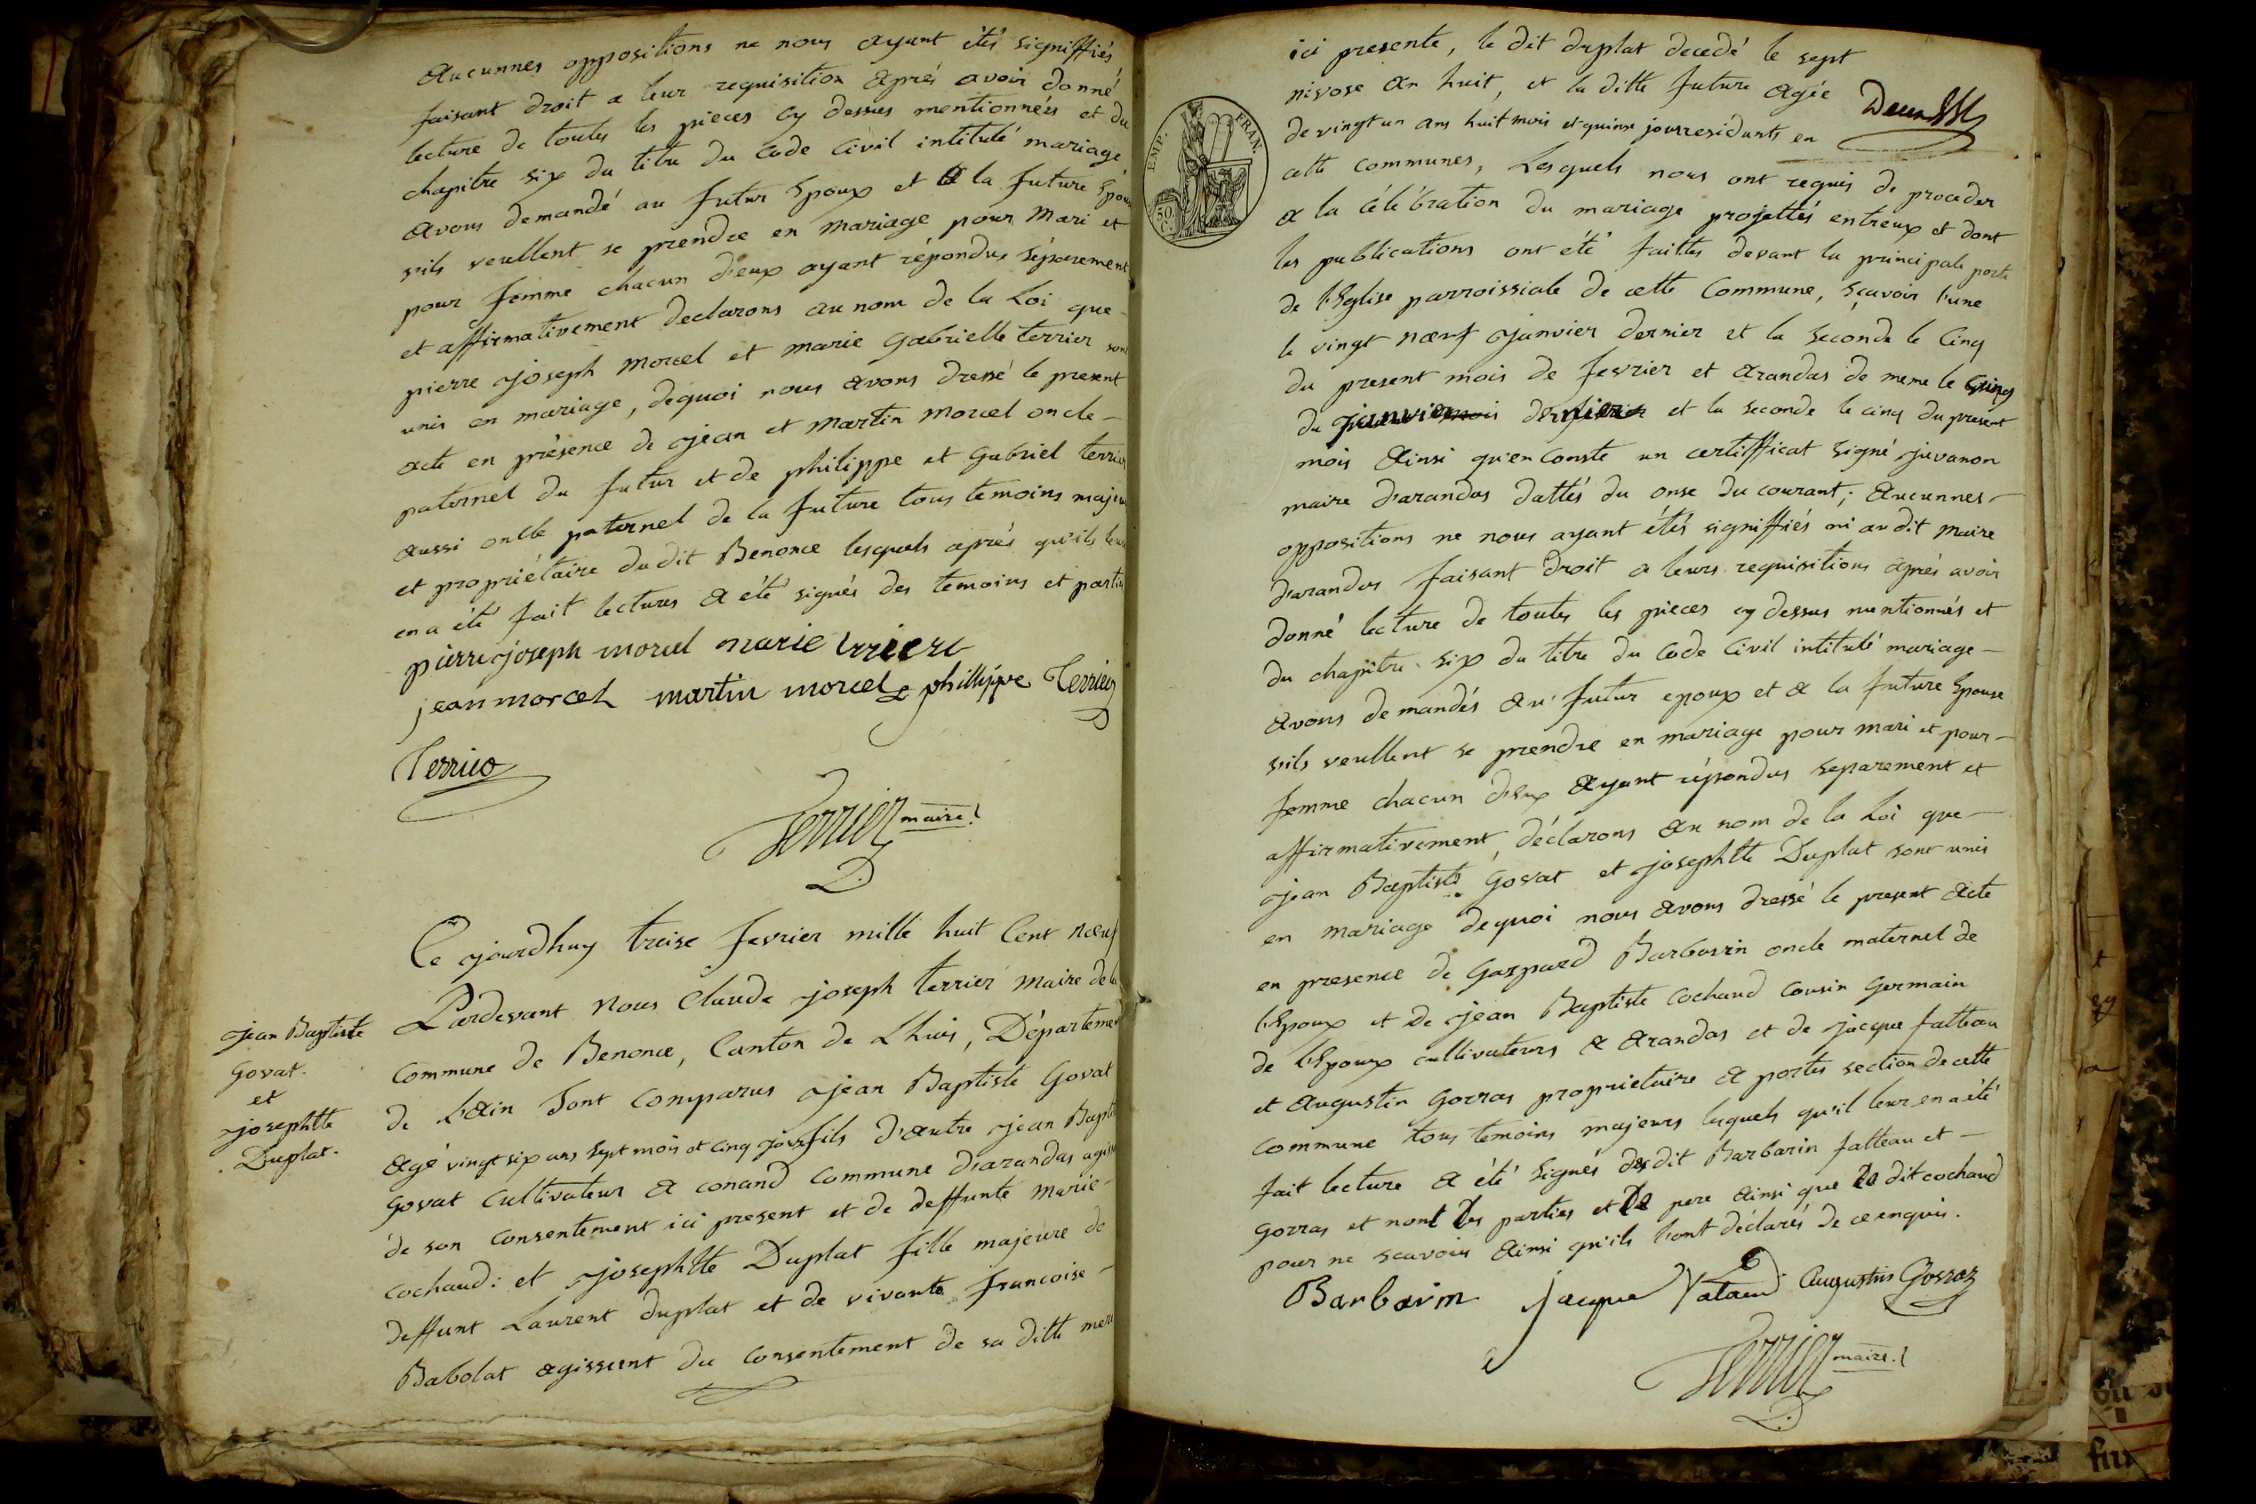 Aucunnes oppositions ne nous ayant étés signiffiés
faisant droit a leur requisition aprés avoir donné
lecture de toutes les pieces cy dessus mentionnées et du
chapitre six du titre du Code Civil intitulé mariage
avons demandé au futur Epoux et a la future Epou
s'ils veullent se prendre en mariage pour mari et
pour femme chacun d'eux ayant répondus séparement
et affirmativement declarons au nom de la Loi que
pierre joseph morcel et marie gabrielle terrier sont
unis en mariage, dequoi nous avons dressé le present
acte en présence de jean et martin morcel oncle
paternel du futur et de philippe et gabriel terrier
aussi oncle paternel de la future tous temoins majeu
et propriétaire dudit Benonce lesquels aprés qu'ils leur
en a été fait lectures a été signés des temoins et parties
pierre joseph morcel marie terrier
jean morcel martin morcel phillippe Terrier
Terrier
Terrier maire
Jean Baptiste
Govat.
et
josephtte
Duplat.
Ce jourdhuy treise fevrier mille huit Cent nœuf
Pardevant Nous Claude joseph terrier Maire de la
Commune de Benonce, Canton de Lhuis, Département
de L'ain sont Comparus jean Baptiste Govat
agé vingt six ans sept mois et cinq jours fils d'autre jean Baptis
govat cultivateur a conand Commune d'arandas agiss
de son consentement ici present et de deffunte marie
cochaud: et josephtte Duplat fille majeure de
deffunt Laurent duplat et de vivante francoise
Babolat agissant du consentement de sa ditte mere
ici presente, le dit duplat decedé le sept
nivose an huit, et la ditte future agée
de vingt un ans huit mois et quinze jours residants en
cette communes, Lesquels nous ont requis de proceder
a la célébration du mariage projettés entreux et dont
les publications ont été faittes devant la principale porte
de l'Eglise parroissiale de cette Commune, sçavoir l'une
le vingt nœuf janvier dernier et la seconde le Cinq
du present mois de fevrier et arandas de meme le
du janvier dernier et la seconde le cinq du present
mois Ainsi qu'en Conste un certifficat signé juvanon
maire d'arandas dattés du onse du courant; Aucunnes
oppositions ne nous ayant étés signiffiés ni au dit maire
d'arandas faisant droit a leurs requisitions aprés avoir
donné lecture de toutes les pieces cy dessus mentionnés et
du chapitre six du titre du Code Civil intitulé mariage
avons demandés au futur epoux et a la future Epouse
s'ils veullent se prendre en mariage pour mari et pour
femme chacun d'eux ayant répondus separement et
affirmativement, déclarons au nom de la Loi que
jean Baptiste Govat et josephtte Duplat sont unis
en mariage dequoi nous avons dressé le present acte
en presence de Gaspard Barbarin oncle maternel de
l'Epoux et de jean Baptiste Cochaud Cousin Germain
de l'Epoux cultivateurs a Arandas et de jacque falteau
et augustin gorras proprietaire a portes section de cette
Commune tous temoins majeurs lesquels qu'il leur en a été
fait lecture a été signés desdit Barbarin falteau et
gorras et nont les parties et le pere ainsi que le dit cochaud
pour ne sçavoir ainsi qu'ils l'ont déclarés de ce enquis.
Barbarin jacque augustin Gorraz
Terrier maire
EMP. FRAN.
50
C.